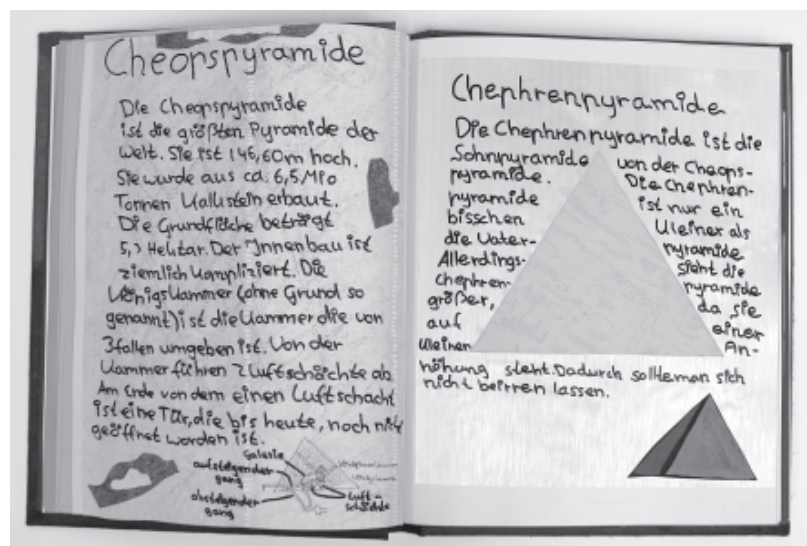 Cheopspyramide
Die Cheopspyramide
ist die größten Pyramide der
Welt. Sie ist 146,60m hoch.
Sie wurde aus ca. 6,5 Mio
Tonnen Kalkstein erbaut.
Die Grundfläche beträgt
5,3 Hektar. Der Innenbau ist
ziemlich kompliziert. Die
Königskammer (ohne Grund so
genannt) ist die Kammer die von
3 fallen umgeben ist. Von der
Kammer führen 2 Luftschächte ab
Am Ende von dem einen Luftschacht
ist eine Tür, die bis heute, noch nicht
geöffnet worden ist.
Galerie
aufsteigender
gang
absteigender
gang
Luft-
schächte
Chephrenpyramide
Die Chephrenpyramide ist die
Sohnpyramide von der Cheops-
pyramide. Die Chephren-
pyramide ist nur ein
bisschen kleiner als
die Vater- pyramide
Allerdings sieht die
chephren- pyramide
größer, da sie
auf einer
kleinen An-
höhung steht. Dadurch sollte man sich
nicht beirren lassen.